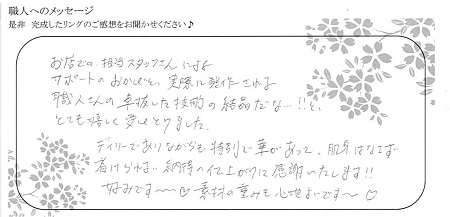 職人へのメッセージ
是非 完成したリングのご感想をお聞かせください♪
お店での担当スタッフさんによる
サポートのおかげと、実際に製作される
職人さんの卓抜した技術の結晶だな…!!と、
とても嬉しく
デイリーでありながらも特別で華があって、肌身はなさず
着けられる、納得の仕上がりに感謝いたします!!
好みです〜♡ 素材の重みも心地よいです〜♡